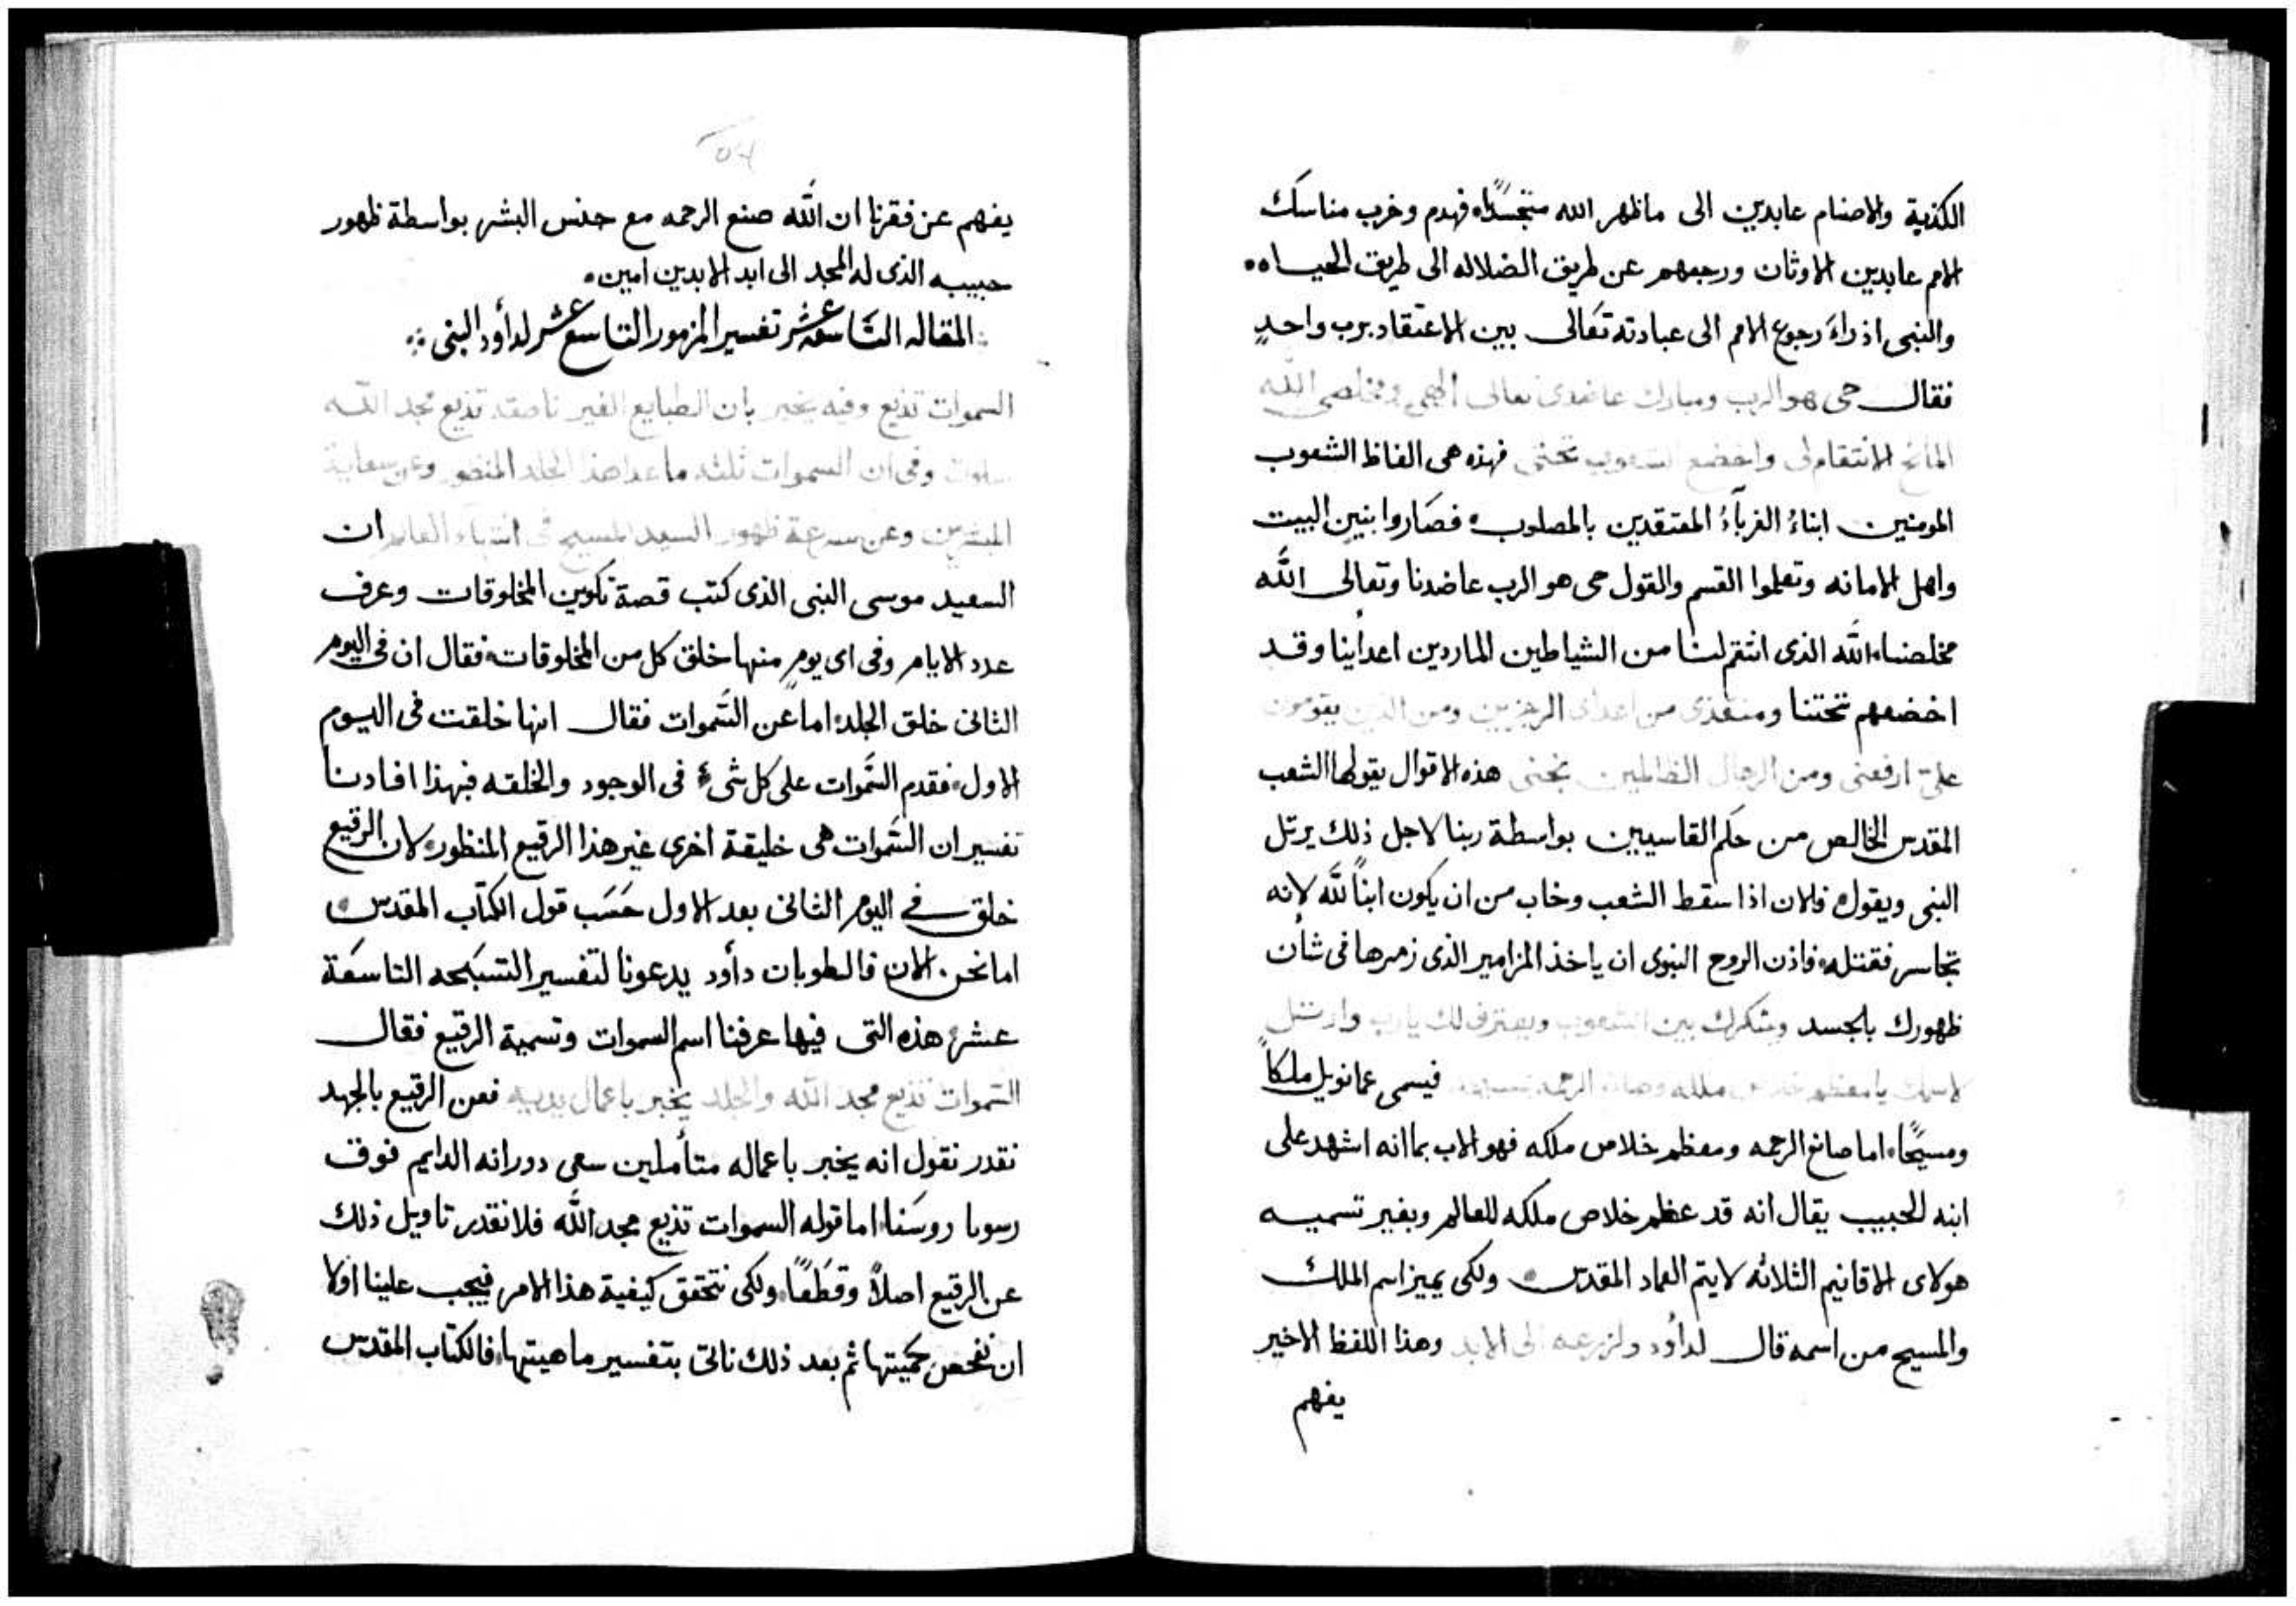 الكذبة والاصنام عابدين الى ماظهر الله متجسدًا، فهدم وخرب مناسك
الامم عابدين الاوثان ورجعهم عن طريق الضلاله الى طريق الحياه ه
والنبى اذ راءَ رجوع الامم الى عبادته تعَالى بين الاعتقاد برب واحدٍ
فقال حى هو الرب ومبارك عاضدى تعالى الهى ومخلصى الله
المانح الانتقام لى واخضع الشعوب تحتى فهذه هى الفاظ الشعوب
المومنين ابناءُ الغربآءُ المعتقدين بالمصلوب، فصَاروا بنين البيت
واهل الامانه وتعلموا القسم والقول حى هو الرب عاضدنا وتعالى اللَّه
مخلصنا، اللَّه الذى انتقم لنا من الشياطين الماردين اعداينا وقد
اخضعهم تحتنا ومنقذى من اعداى الرجزيين ومن الذين يقومون
علىّ ارفعنى ومن الرجال الظالمين نجنى هذه الاقوال يقولها الشعب
المقدس الخالص من حكم القاسيين بواسطة ربنا لاجل ذلك يرتل
النبى ويقول، فلان اذا سقط الشعب وخاب من ان يكون ابنًا للَّه لانه
تجاسر فقتله، فاذن الروح النبوى ان ياخذ المزامير الذى زمرها فى شأن
ظهورك بالجسد وشكرك بين الشعوب ويعترف لك يارب وارتل
لاسمك يا معظم خلاص ملكه وصانع الرحمه لمسيحه فيسمى عمانويل ملكاً
ومسيَحًا، اما صانع الرحمه ومعظم خلاص ملكه فهو الاب بما انه اشهد على
ابنه الحبيب يقال انه قد عظم خلاص ملكه للعالم وبغير تسميه
هولاى الاقانيم الثلاثه لايتم العماد المقدس، ولكى يميز اسم الملك
والمسيح من اسمه قال لداوُد ولزرعه الى الابد وهذا اللفظ الاخير
يفهم
يفهم عن فقرنا ان اللَّه صنع الرحمه مع جنس البشر بواسطة ظهور
حبيبه الذى له المجد الى ابد الابدين امين،
المقاله التَاسعة عشر تفسير المزمور التاسع عشر لدأود النبى
السموات تذيع وفيه يخبر بان الطبايع الغير ناطقه تذيع مجد اللَّه
وفى ان السموات ثلثه ماعدا هذا الجلد المنظور وعن سعاية
المبشرين وعن سرعة ظهور السيد المسيح فى انتهاء العالم ان
السعيد موسى النبى الذى كتب قصة تكوين المخلوقات وعرف
عدد الايام وفى اى يومٍ منها خلق كل من المخلوقات، فقال ان فى اليوم
الثانى خلق الجلد، اما عن السَّموات فقال انها خلقت فى اليوم
الاول، فقدم السَّموات على كل شىءُ فى الوجود والخلقه فبهذا افادنا
تفسير ان السَّموات هى خليقة اخرى غير هذا الرقيع المنظور، لان الرقيع
خلق فى اليوم الثانى بعد الاول حَسَب قول الكتاب المقدس،
امانحن الان فالطوبان دأود يدعونا لتفسير التسبَحه التاسعَة
عشر، هذه التى فيها عرفنا اسم السموات وتسمية الرقيع فقال
السَّموات تذيع مجد اللَّه والجلد يخبر باعمال يديه فعن الرقيع بالجهد
نقدر نقول انه يخبر باعماله متأملين سعى دورانه الدايم فوق
روسَنا، اما قوله السموات تذيع مجد اللَّه فلا نقدر تاويل ذلك
عن الرقيع اصلاً وقطعًا، ولكى نتحقق كيفية هذا الامر فيجب علينا اولا
ان نفحص كميتها ثم بعد ذلك ناتى بتفسير ماهيتها، فالكتاب المقدس